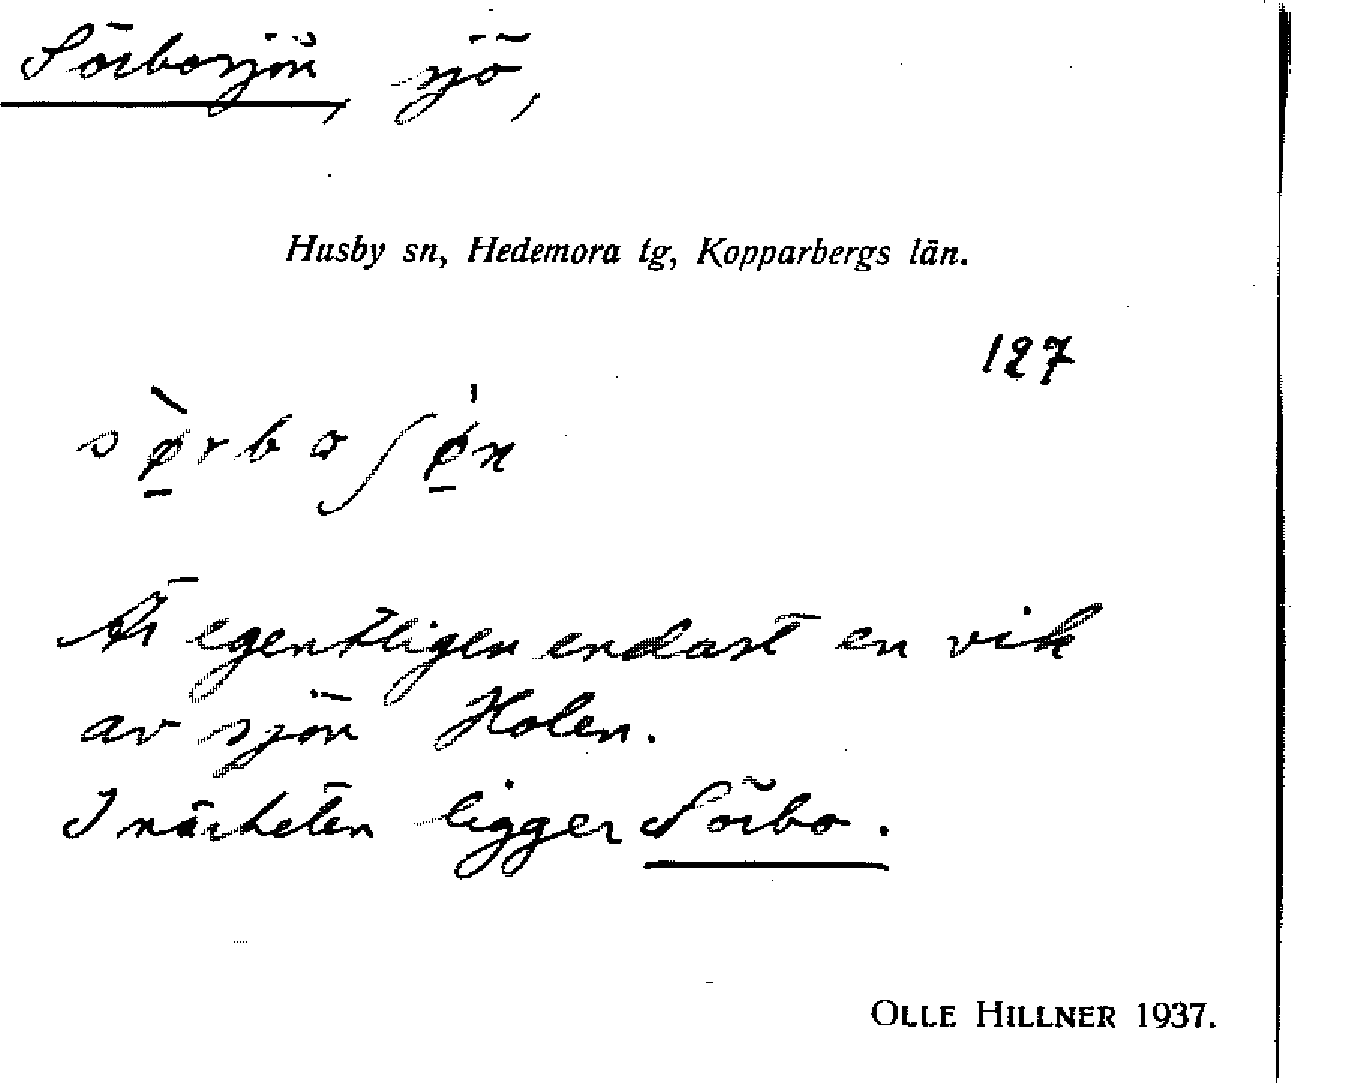 Sörbosjön, sjö,
Husby sn, Hedemora tg, Kopparbergs län.
127
sø̠̀rboʃǿ̠n
Är egentligen endast en vik
av sjön Holen.
I närheten ligger Sörbo.
OLLE HILLNER 1937.